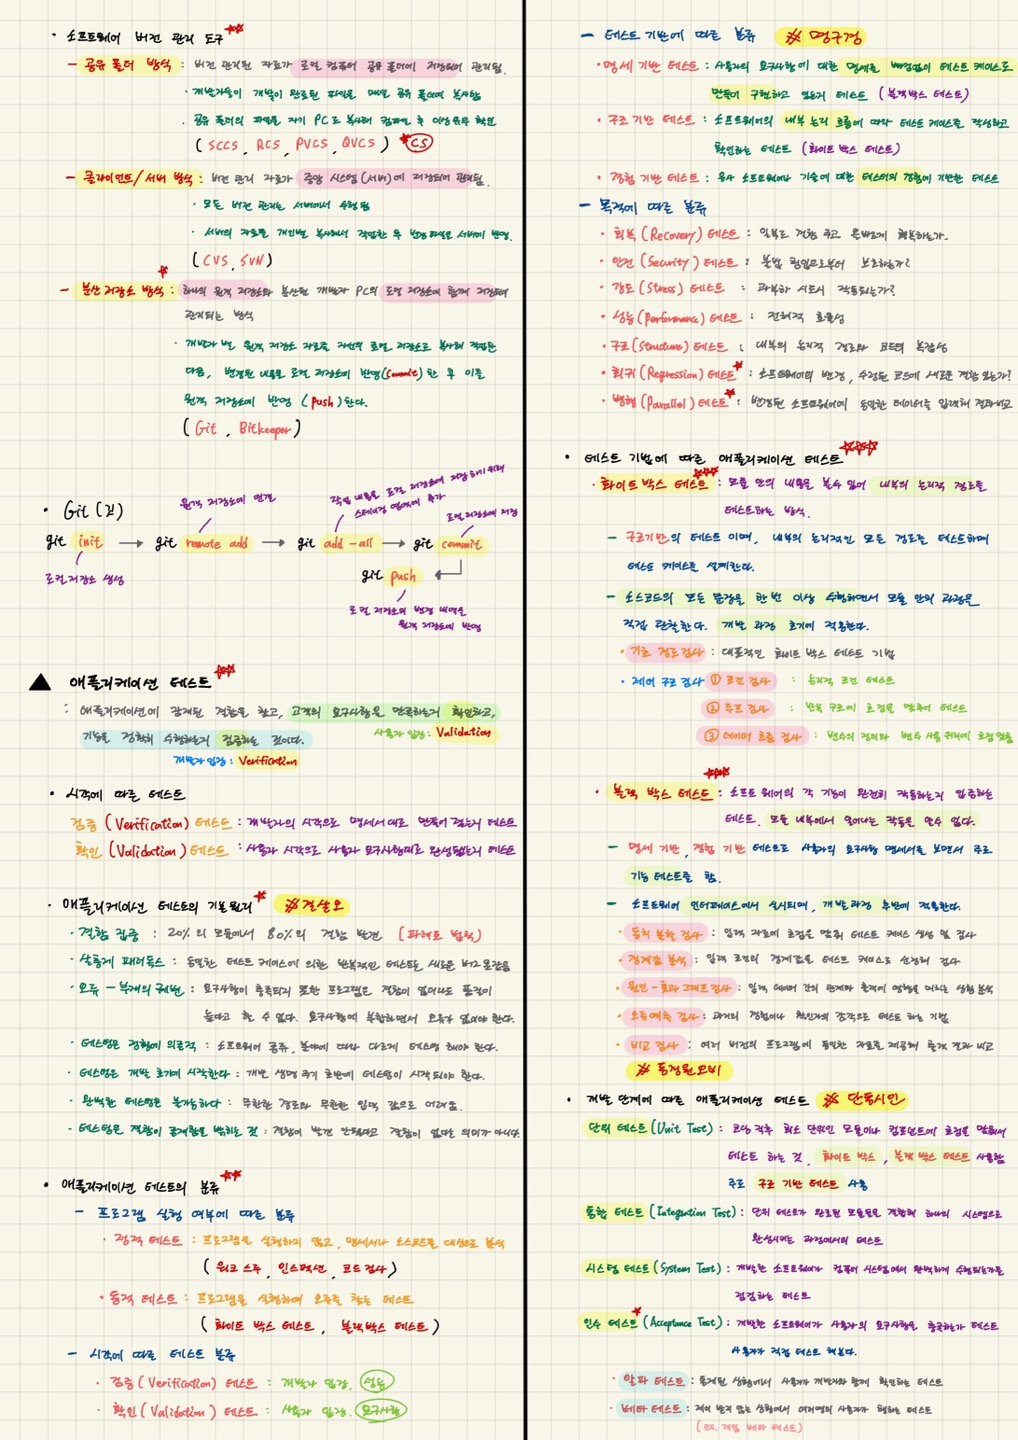 · 소프트웨어 버전 관리 도구
- 공유 폴더 방식 : 버전 관리된 자료가 로컬 컴퓨터 공유 폴더에 저장되어 관리됨.
· 개발자들이 개발이 완료된 파일을 매일 공유 폴더에 복사함
· 공유 폴더의 파일을 자기 PC로 복사해 컴파일 후 이상유무 확인
( SCCS, RCS, PVCS, QVCS ) CS
- 클라이언트/서버 방식 : 버전 관리 자료가 중앙 시스템(서버)에 저장되어 관리됨.
· 모든 버전 관리는 서버에서 수행됨
· 서버의 자료를 개인별 복사해서 작업한 후 변경파일은 서버에 반영.
( CVS, SVN )
- 분산 저장소 방식 : 하나의 원격 저장소와 분산된 개발자 PC의 로컬 저장소에 함께 저장되어
관리되는 방식
· 개발자 별 원격 저장소 자료를 자신의 로컬 저장소로 복사해 작업한
다음, 변경된 내용을 로컬 저장소에 반영(commit) 한 후 이를
원격 저장소에 반영 (push)한다.
( Git, Bitkeeper )
· Git (깃)
원격 저장소에 연결
작업 내용을 로컬 저장소에 저장하기 위해
스테이징 영역에 추가
로컬 저장소에 저장
git init → git remote add → git add -all → git commit
로컬 저장소 생성
git push
로컬 저장소의 변경 내역을
원격 저장소에 반영
▲ 애플리케이션 테스트
: 애플리케이션에 잠재된 결함을 찾고, 고객의 요구사항을 만족하는지 확인하고,
기능을 정확히 수행하는지 검증하는 것이다.
사용자 입장 : Validation
개발자 입장 : Verification
· 시각에 따른 테스트
검증 (Verification) 테스트 : 개발자의 시각으로 명세서대로 만들어 졌는지 테스트
확인 (Validation) 테스트 : 사용자 시각으로 사용자 요구사항대로 완성됐는지 테스트
· 애플리케이션 테스트의 기본원리 #결살오
· 결함 집중 : 20%의 모듈에서 80%의 결함 발견 (파레토 법칙)
· 살충제 패러독스 : 동일한 테스트 케이스에 의한 반복적인 테스트는 새로운 버그 못찾음
· 오류-부재의 궤변 : 요구사항이 충족되지 못한 프로그램은 결함이 없어도 품질이
높다고 할 수 없다. 요구사항에 부합하면서 오류가 없어야 한다.
· 테스팅은 정황에 의존적 : 소프트웨어 종류, 분야에 따라 다르게 테스팅 해야 한다.
· 테스팅은 개발 초기에 시작한다 : 개발 생명 주기 초반에 테스팅이 시작되야 한다.
· 완벽한 테스팅은 불가능하다 : 무한한 경로와 무한한 입력 값으로 어려움.
· 테스팅은 결함이 존재함을 밝히는 것 : 결함이 발견 안됐다고 결함이 없다는 의미가 아니다.
· 애플리케이션 테스트의 분류
- 프로그램 실행 여부에 따른 분류
· 정적 테스트 : 프로그램을 실행하지 않고, 명세서나 소스코드를 대상으로 분석
( 워크스루, 인스펙션, 코드 검사 )
· 동적 테스트 : 프로그램을 실행하여 오류를 찾는 테스트
( 화이트 박스 테스트, 블랙박스 테스트 )
- 시각에 따른 테스트 분류
· 검증 (Verification) 테스트 : 개발자 입장. 성능
· 확인 (Validation) 테스트 : 사용자 입장. 요구사항
- 테스트 기반에 따른 분류 #명구경
· 명세 기반 테스트 : 사용자의 요구사항에 대한 명세를 빠짐없이 테스트 케이스로
만들어 구현하고 있는지 테스트 (블랙박스 테스트)
· 구조 기반 테스트 : 소프트웨어의 내부 논리 흐름에 따라 테스트 케이스를 작성하고
확인하는 테스트 (화이트 박스 테스트)
· 경험 기반 테스트 : 유사 소프트웨어나 기술에 대한 테스터의 경험에 기반한 테스트
- 목적에 따른 분류
· 회복 (Recovery) 테스트 : 일부로 결함 주고 올바르게 회복하는가.
· 안전 (Security) 테스트 : 불법 침입으로부터 보호하는가?
· 강도 (Stress) 테스트 : 과부하 시도시 작동되는가?
· 성능 (performance) 테스트 : 전체적 효율성
· 구조 (Structure) 테스트 : 내부의 논리적 경로와 코드의 복잡성
· 회귀 (Regression) 테스트 : 소프트웨어의 변경, 수정된 코드에 새로운 결함 있는가?
· 병행 (Parallel) 테스트 : 변경된 소프트웨어에 동일한 데이터를 입력해 결과비교
· 테스트 기법에 따른 애플리케이션 테스트
· 화이트 박스 테스트 : 모듈 안의 내용을 볼수 있어 내부의 논리적 경로를
테스트하는 방식.
- 구조기반의 테스트 이며, 내부의 논리적인 모든 경로를 테스트하며
테스트 케이스를 설계한다.
- 소스코드의 모든 문장을 한 번 이상 수행하면서 모듈 안의 과정을
직접 관찰한다. 개발 과정 초기에 적용한다.
· 기초 경로 검사 : 대표적인 화이트 박스 테스트 기법
· 제어 구조 검사 ① 조건 검사 : 논리적 조건 테스트
② 루프 검사 : 반복 구조에 초점을 맞추어 테스트
③ 데이터 흐름 검사 : 변수의 정의와 변수 사용 위치에 초점 맞춤
· 블랙 박스 테스트 : 소프트 웨어의 각 기능이 완전히 작동하는지 입증하는
테스트. 모듈 내부에서 일어나는 작동을 알수 없다.
- 명세 기반, 경험 기반 테스트로 사용자의 요구사항 명세서를 보면서 주로
기능 테스트를 함.
- 소프트웨어 인터페이스에서 실시되며, 개발과정 후반에 적용한다.
· 동치 분할 검사 : 입력 자료에 초점을 맞춰 테스트 케이스 생성 및 검사
· 경계값 분석 : 입력 조건의 경계값을 테스트 케이스로 선정해 검사
· 원인-효과 그래프 검사 : 입력 데이터 간의 관계와 출력에 영향을 미치는 상황 분석
· 오류예측 검사 : 과거의 경험이나 확인자의 감각으로 테스트 하는 기법
· 비교 검사 : 여러 버전의 프로그램에 동일한 자료를 제공해 출력 결과 비교
#동경원오비
· 개발 단계에 따른 애플리케이션 테스트 #단통시인
단위 테스트 (Unit Test) : 코딩 직후 최소 단위인 모듈이나 컴포넌트에 초점을 맞춰서
테스트 하는 것. 화이트 박스, 블랙 박스 테스트 사용함
주로 구조 기반 테스트 사용
통합 테스트 (Integration Test) : 단위 테스트가 완료된 모듈들을 결합해 하나의 시스템으로
완성시키는 과정에서의 테스트
시스템 테스트 (System Test) : 개발한 소프트웨어가 컴퓨터 시스템에서 완벽하게 수행되는가를
점검하는 테스트
인수 테스트 (Acceptance Test) : 개발한 소프트웨어가 사용자의 요구사항을 충족하는가 테스트
사용자가 직접 테스트 해본다.
· 알파 테스트 : 통제된 상황에서 사용자가 개발자와 함께 확인하는 테스트
· 베타 테스트 : 제어 받지 않는 상황에서 여러명의 사용자가 행하는 테스트
(ex. 게임 베타 테스트)